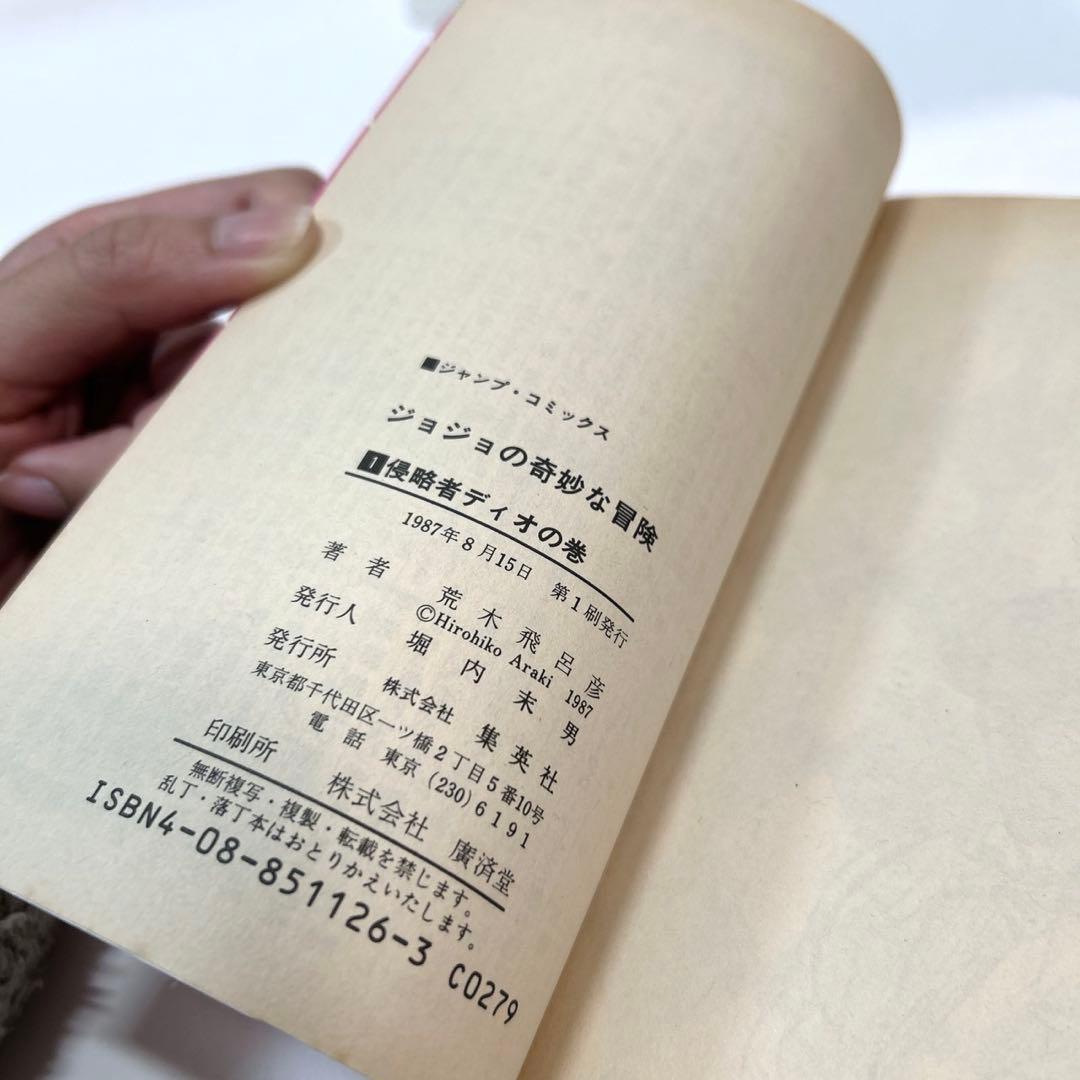 ■ジャンプ・コミックス
ジョジョの奇妙な冒険
1侵略者ディオの巻
1987年8月15日 第1刷発行
著者 荒木飛呂彦
©Hirohiko Araki 1987
発行人 堀内末男
発行所 株式会社 集英社
東京都千代田区一ツ橋2丁目5番10号
電話 東京 (230) 6191
印刷所 株式会社 廣済堂
無断複写・複製・転載を禁じます。
乱丁・落丁本はおとりかえいたします。
ISBN4-08-851126-3 C0279